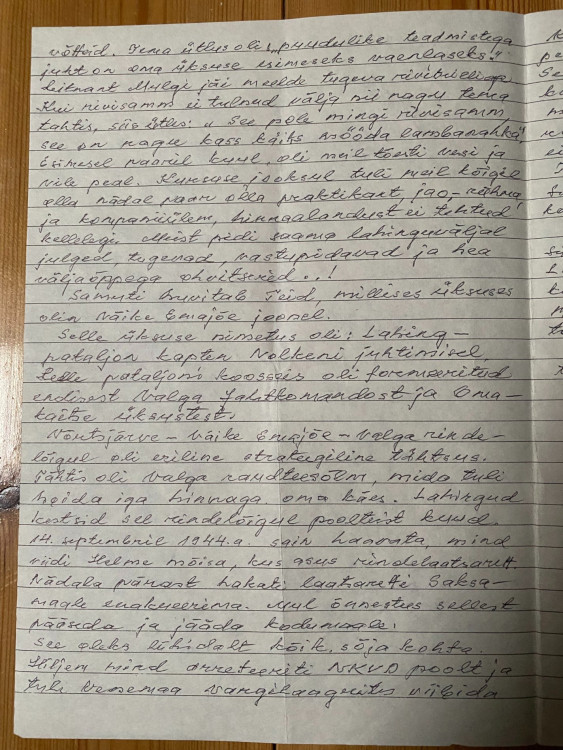 võtteid. Tema ütlus oli: „puudulike teadmistega
juht on oma üksuse esimeseks vaenlaseks!"
Leitnant Mulgi jäi meelde tugeva rivitrilliga
Kui rivisamm ei tulnud välja nii nagu tema
tahtis, siis ütles: „See pole mingi rivisamm,
see on nagu kass käiks mööda lambanahka!
Esimesel paaril kuul, oli meil tõesti vesi ja
vile peal. Kursuse jooksul tuli meil kõigil
olla nädal paar olla praktikant jao-, rühma
ja kompaniiülem, hinnaalandust ei tehtud
kellelegi. Meist pidi saama lahinguväljal
julged, tugevad, vastupidavad ja hea
väljaõppega ohvitserid..!
Samuti huvitab Teid, millises üksuses
olin Väike Emajõe joonel.
Selle üksuse nimetus oli: Lahing-
pataljon kapten Nolkeni juhtimisel.
Selle pataljoni koosseis oli formeeritud
endisest Valga Jahtkomandost ja Oma-
kaitse üksustest.
Võrtsjärve – Väike Emajõe – Valga rinde-
lõigul oli eriline strateegiline tähtsus.
Tähtis oli Valga raudteesõlm, mida tuli
hoida iga hinnaga oma käes. Lahingud
kestsid sel rindelõigul poolteist kuud.
14. septembril 1944.a. sain haavata, mind
viidi Helme mõisa, kus asus rindelaatsarett.
Nädala pärast hakati laatsaretti Saksa-
maale evakueerima. Mul õnnestus sellest
pääseda ja jääda kodumaale.
See oleks lühidalt kõik, sõja kohta.
Hiljem mind arreteeriti NKVD poolt ja
tuli Venemaa vangilaagrites viibida